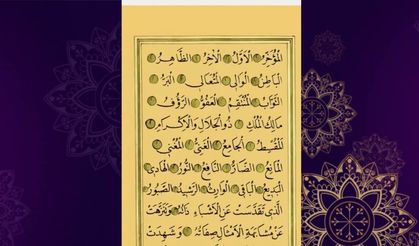 الْمُؤَخِّرُ الْأَوَّلُ الْآخِرُ الظَّاهِرُ
الْبَاطِنُ الْوَالِي الْمُتَعَالِي الْبَرُّ
التَّوَّابُ الْمُنْتَقِمُ الْعَفُوُّ الرَّؤُفُ
مَالِكُ الْمُلْكِ ذُو الْجَلَالِ وَالْاِكْرَامِ
الْمُقْسِطُ الْجَامِعُ الْغَنِيُّ الْمُغْنِي
الْمَانِعُ الضَّارُّ النَّافِعُ النُّورُ الْهَادِي
الْبَدِيعُ الْبَاقِي الْوَارِثُ الرَّشِيدُ الصَّبُورُ
الَّذِي تَقَدَّسَتْ عَنِ الْاَشْبَاهِ ذَاتُهُ وَتَنَزَّهَتْ
عَنْ مُشَابَهَةِ الْاَمْثَالِ صِفَاتُهُ وَشَهِدَتْ